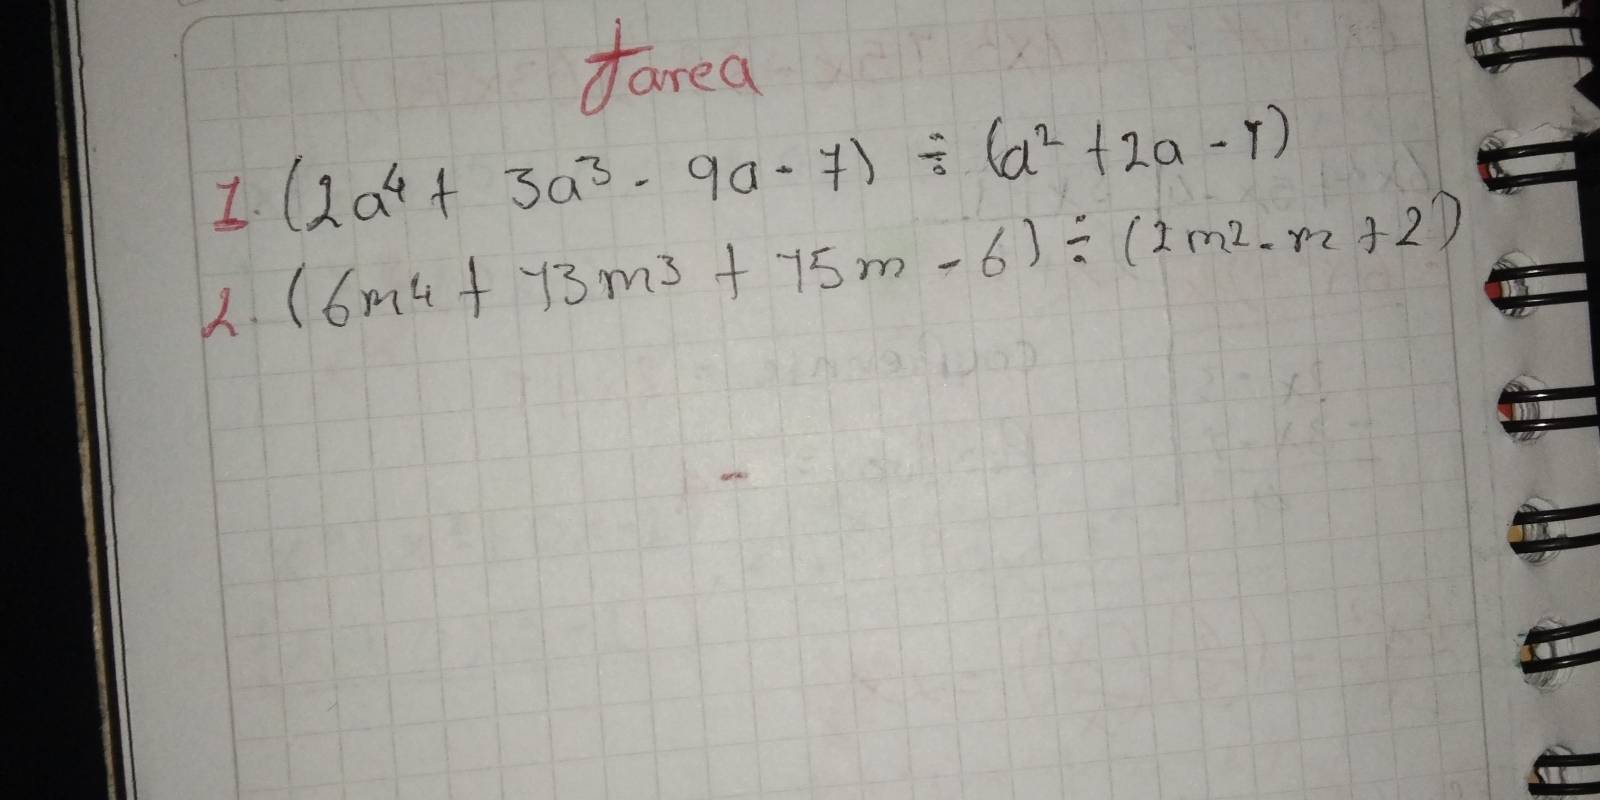 Tarea
1. (2a⁴ + 3a³ - 9a - 7) ÷ (a² + 2a - 1)
2. (6m⁴ + 13m³ + 15m - 6) ÷ (2m² - m + 2)